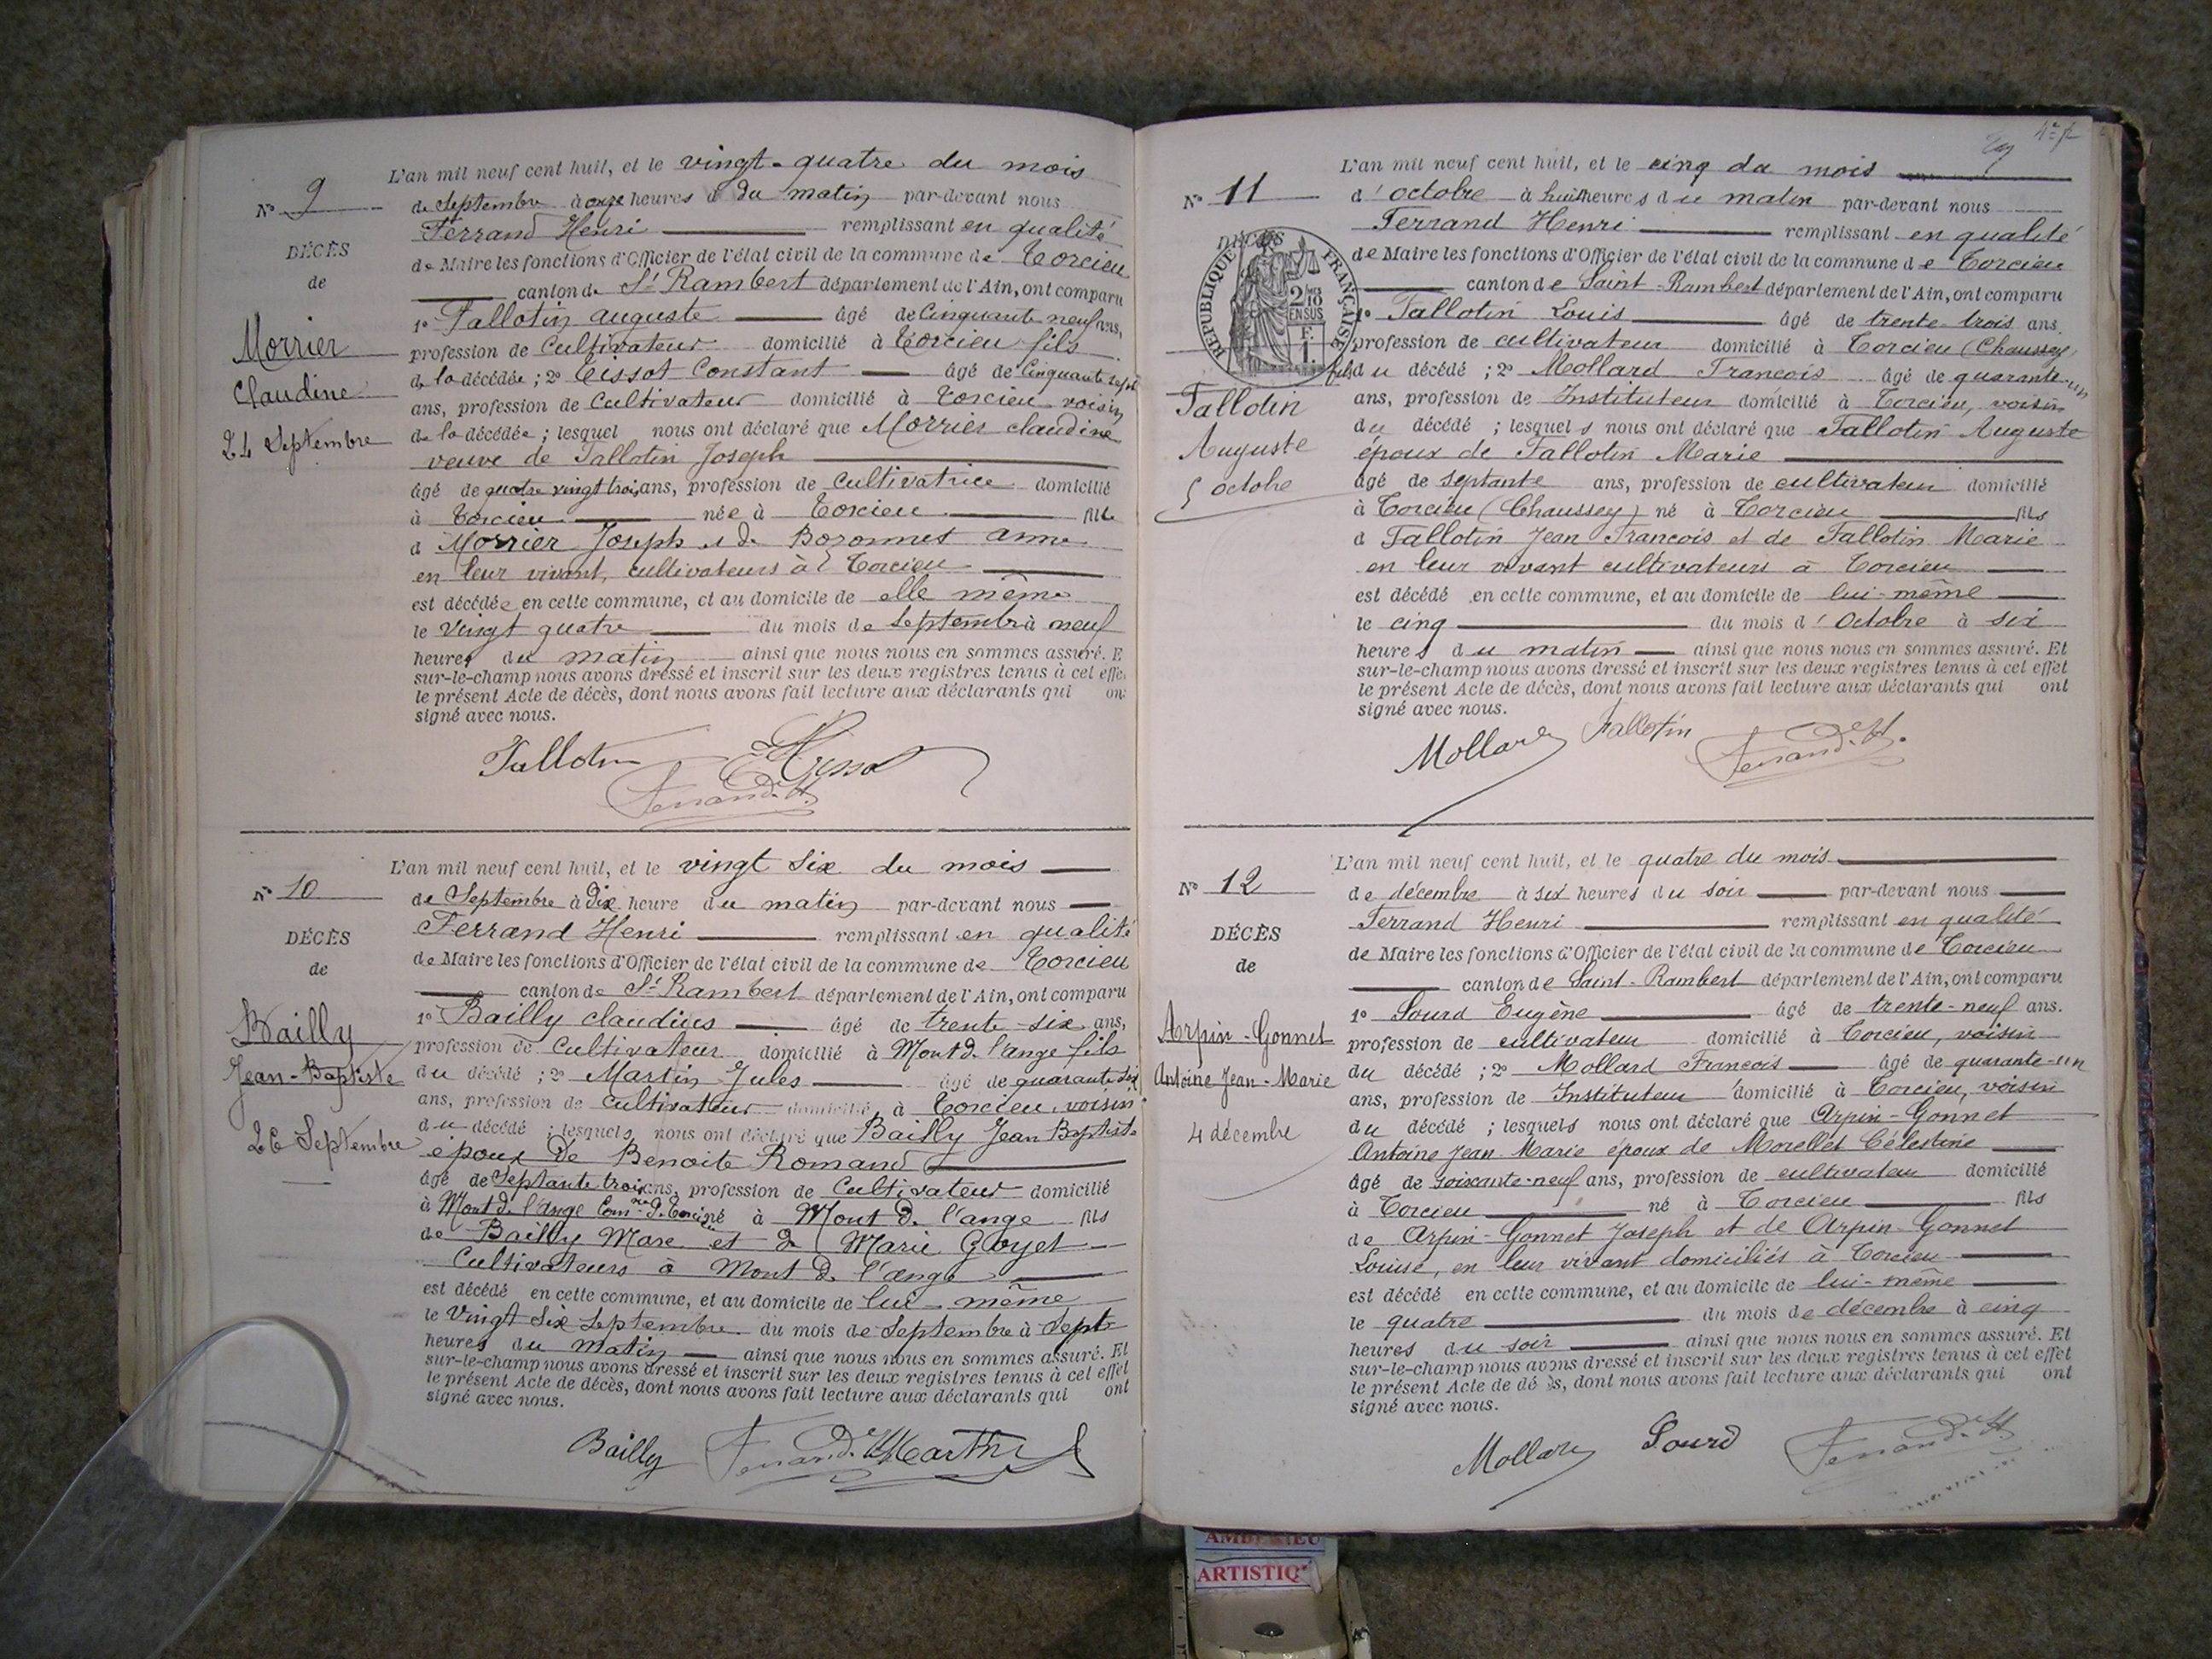 L'an mil neuf cent huit, et le vingt-quatre du mois
Nº 9
de Septembre à onze heures d du matin par-devant nous
Ferrand Henri remplissant en qualité
DÉCÈS
de Maire les fonctions d'Officier de l'état civil de la commune de Torcieu
de
canton de St Rambert département de l'Ain, ont comparu
1º Tallotin auguste âgé de Cinquante neuf ans,
Morrier
profession de Cultivateur domicilié à Torcieu fils
Claudine
de la décédée ; 2º Tissot Constant âgé de Cinquante sept
ans, profession de Cultivateur domicilié à Torcieu voisin
24 Septembre
de la décédée ; lesquel nous ont déclaré que Morrier claudine
veuve de Tallotin Joseph
âgé de quatre vingt trois ans, profession de Cultivatrice domicilié
à Torcieu née à Torcieu fille
d Morrier Joseph et de Boronnet anne
en leur vivant, cultivateurs à Torcieu
est décédée en cette commune, et au domicile de elle même
le Vingt quatre du mois de Septembre à neuf
heures du matin ainsi que nous nous en sommes assuré. E
sur-le-champ nous avons dressé et inscrit sur les deux registres tenus à cet effe
le présent Acte de décès, dont nous avons fait lecture aux déclarants qui on
signé avec nous.
Tallotin
Ferrand H.
L'an mil neuf cent huit, et le vingt six du mois
Nº 10
de Septembre à Dix heure du matin par-devant nous
Ferrand Henri remplissant en qualité
DÉCÈS
de Maire les fonctions d'Officier de l'état civil de la commune de Torcieu
de
canton de St Rambert département de l'Ain, ont comparu
Bailly
1º Bailly claudius âgé de trente-six ans,
profession de Cultivateur domicilié à Mont d. l'ange fils
Jean-Baptiste
du décédé ; 2º Martin Jules âgé de quarante six
ans, profession de cultivateur domicilié à Torcieu voisin
26 Septembre
du décédé ; lesquels nous ont déclaré que Bailly Jean Baptiste
époux de Benoite Romand
âgé de Septante trois ans, profession de Cultivateur domicilié
à Mont d. l'ange Com.ne d. Torcieu né à Mont d. l'ange fils
de Bailly Marc et d Marie Goyet
Cultivateurs à Mont d. l'ange
est décédé en cette commune, et au domicile de lui-même
le Vingt Six Septembre du mois de Septembre à Sept
heures du matin ainsi que nous nous en sommes assuré. Et
sur-le-champ nous avons dressé et inscrit sur les deux registres tenus à cet effet
le présent Acte de décès, dont nous avons fait lecture aux déclarants qui ont
signé avec nous.
Bailly Ferrand H. Martin J
L'an mil neuf cent huit, et le cinq du mois
Nº 11
d'octobre à huit heures du matin par-devant nous
Ferrand Henri remplissant en qualité
DÉCÈS
RÉPUBLIQUE FRANÇAISE
2/10 EN SUS
F. 1.
de Maire les fonctions d'Officier de l'état civil de la commune de Torcieu
canton de Saint-Rambert département de l'Ain, ont comparu
1º Tallotin Louis âgé de trente-trois ans.
profession de cultivateur domicilié à Torcieu (Chaussey)
fils du décédé ; 2º Mollard François âgé de quarante-un
Tallotin
ans, profession de Instituteur domicilié à Torcieu, voisin
Auguste
du décédé ; lesquels nous ont déclaré que Tallotin Auguste
époux de Tallotin Marie
5 octobre
âgé de septante ans, profession de cultivateur domicilié
à Torcieu (Chaussey) né à Torcieu fils
d Tallotin Jean François et de Tallotin Marie
en leur vivant cultivateurs à Torcieu
est décédé en cette commune, et au domicile de lui-même
le cinq du mois d'Octobre à six
heures du matin ainsi que nous nous en sommes assuré. Et
sur-le-champ nous avons dressé et inscrit sur les deux registres tenus à cet effet
le présent Acte de décès, dont nous avons fait lecture aux déclarants qui ont
signé avec nous.
Mollard Tallotin Ferrand H.
L'an mil neuf cent huit, et le quatre du mois
Nº 12
de décembre à six heures du soir par-devant nous
Ferrand Henri remplissant en qualité
DÉCÈS
de Maire les fonctions d'Officier de l'état civil de la commune de Torcieu
de
canton de Saint-Rambert département de l'Ain, ont comparu
1º Sourd Eugène âgé de trente-neuf ans.
Arpin-Gonnet
profession de cultivateur domicilié à Torcieu, voisin
Antoine Jean-Marie
du décédé ; 2º Mollard François âgé de quarante-un
ans, profession de Instituteur domicilié à Torcieu, voisin
4 décembre
du décédé ; lesquels nous ont déclaré que Arpin-Gonnet
Antoine Jean Marie époux de Morellet Célestine
âgé de soixante-neuf ans, profession de cultivateur domicilié
à Torcieu né à Torcieu fils
de Arpin-Gonnet Joseph et de Arpin-Gonnet
Louise, en leur vivant domiciliés à Torcieu
est décédé en cette commune, et au domicile de lui-même
le quatre du mois de décembre à cinq
heures du soir ainsi que nous nous en sommes assuré. Et
sur-le-champ nous avons dressé et inscrit sur les deux registres tenus à cet effet
le présent Acte de dé ès, dont nous avons fait lecture aux déclarants qui ont
signé avec nous.
Mollard Sourd Ferrand H
ARTISTIQ